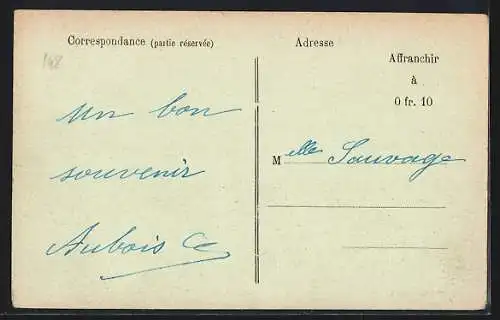 Correspondance (partie réservée)
148
Un bon
souvenir
Aubois Ce
Adresse
Affranchir
à
0 fr. 10
Melle Sauvage